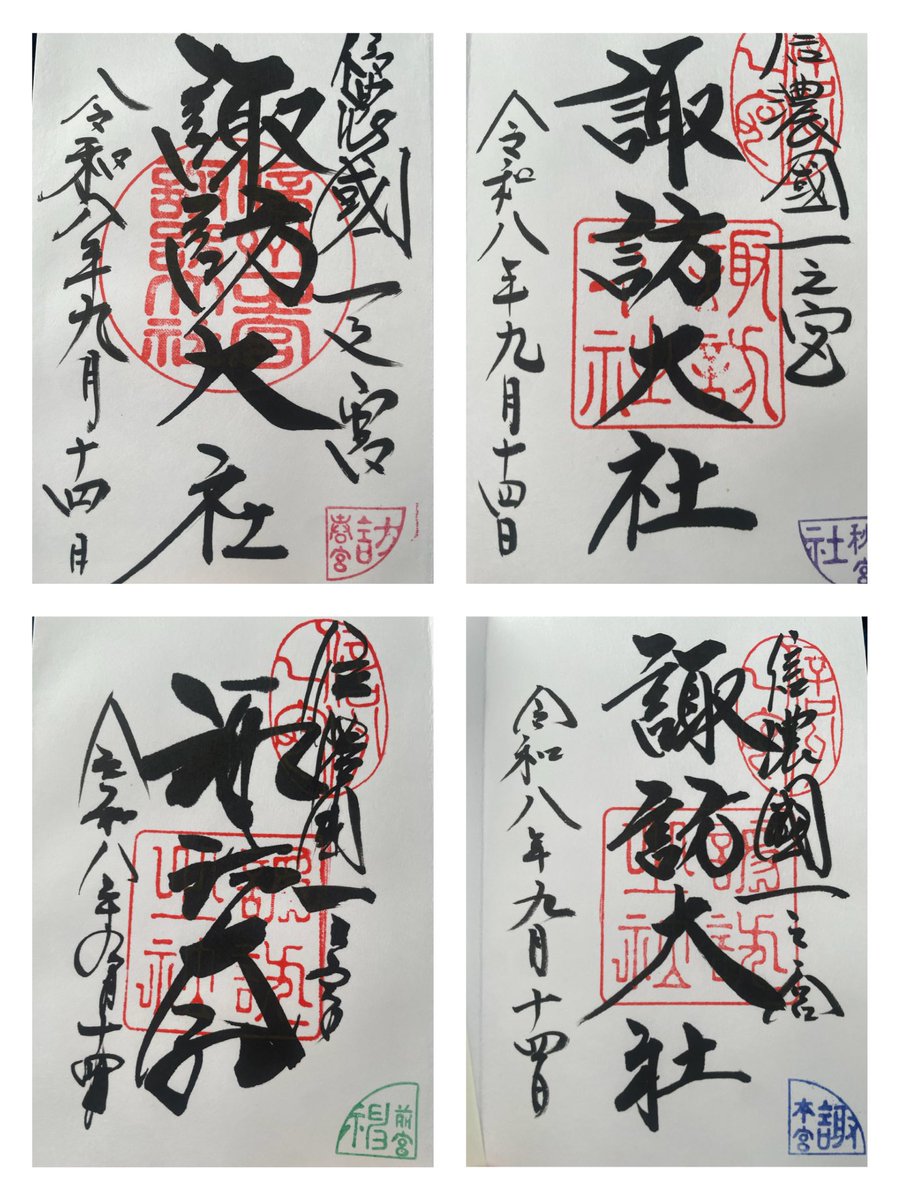 信濃國一之宮
諏訪大社
令和八年九月十四日
訪
春宮
信濃國一之宮
諏訪大社
令和八年九月十四日
諏訪
社
秋宮
社
信濃國一之宮
諏訪大社
令和八年九月十四日
前宮
信濃國一之宮
諏訪大社
令和八年九月十四日
諏
本宮